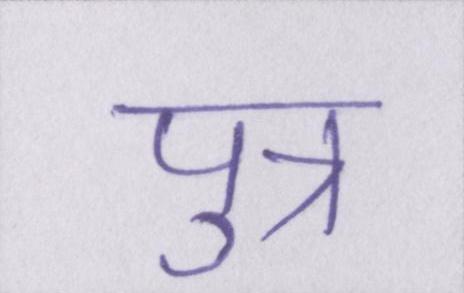 पुत्र